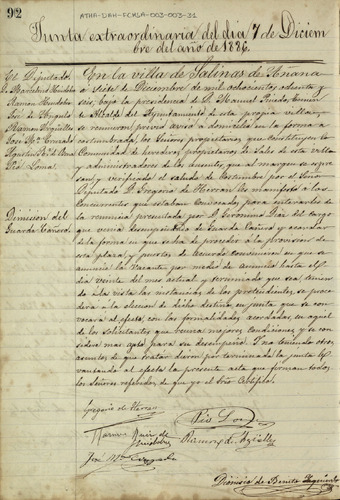 92
ATHA-DAH-FCMSA-003-003-31
Junta extraordinaria del dia 7 de Diciem
bre del año de 1886.
En la villa de Salinas de Añana
á siete de Diciembre de mil ochocientos ochenta y
seis, bajo la presidencia de D. Manuel
Alcalde del Ayuntamiento de esta propia villa
se reunieron, previo aviso a domicilio en la forma a
costumbrada, los Señores propietarios que constituyen la
Comunidad de herederos propietarios de Sales de esta villa
y administradores de los ausentes, que al margen se espre
san, y verificado el saludo de costumbre por el Señor
Diputado D. Gregorio de Herran les manifestó a los
concurrentes que estaban convocados, para enterarles de
la renuncia presentada por D. Geronimo del cargo
que venia desempeñando de Guarda Cañero, y acordar
de la forma en que se ha de proceder á la provision de
esta plaza, y puestos de acuerdo convinieron en que se
anuncie la vacante por medio de anuncio hasta el
dia veinte del mes actual, y terminado que sea, tenien
do á la vista las instancias de los pretendientes, se proce
derá a la eleccion de dicho destino, en junta que se con
vocará al efecto, con las formalidades acordadas, en aquel
de los solicitantes que reuna mejores condiciones y se con
sidere mas apto para su desempeño. Y no teniendo otros
asuntos de que tratar dieron por terminada la junta le
vantando al efecto la presente acta que forman todos
los Señores referidos, de que yo el Srio Certifico.
El Diputado
D. Marcelino
Ramon
José de Angulo
Ramon Arguilles
José Mª Cerezale
Pio Loma
Dimision del
Guarda Cañero.
Gregorio de Herran
Pio Loma
Ramon Ruiz de
Ramon de
José Mª Cerezale
Dionisio de Benito Izquierdo